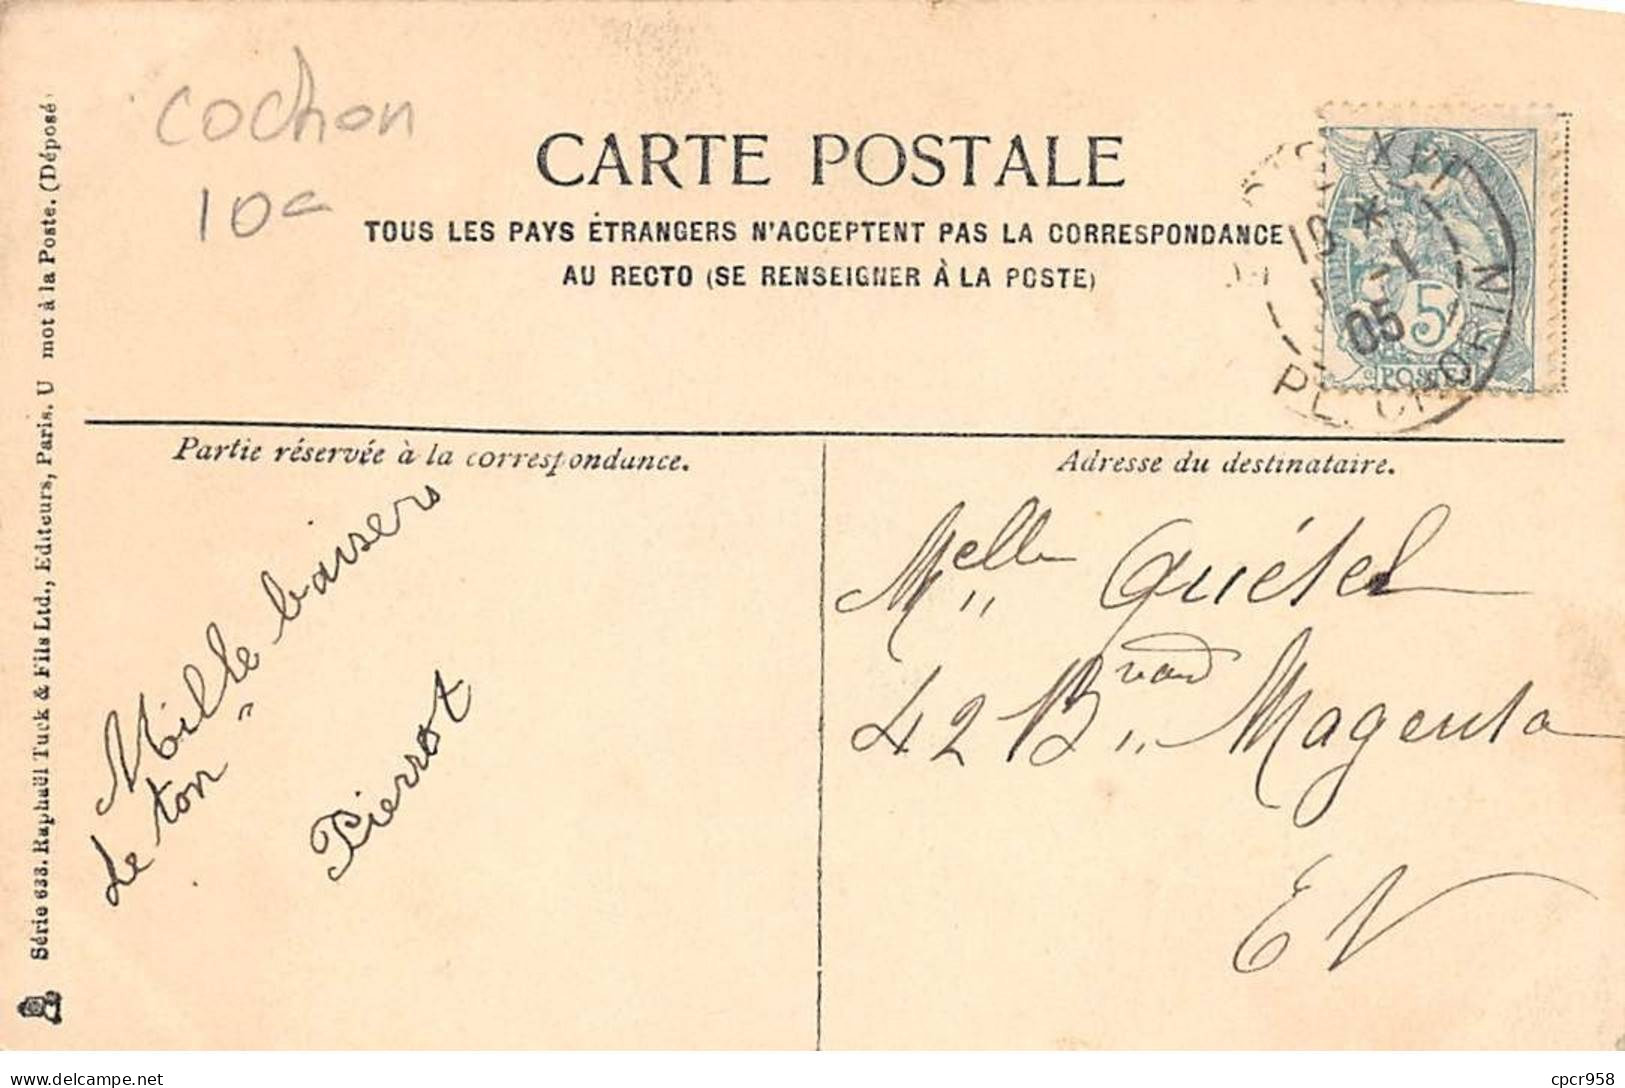 cochon
10€
CARTE POSTALE
TOUS LES PAYS ÉTRANGERS N'ACCEPTENT PAS LA CORRESPONDANCE
AU RECTO (SE RENSEIGNER À LA POSTE)
10 *
-1
05
PL. CHOPIN
5
POSTES
Partie réservée à la correspondance.
Adresse du destinataire.
Mille baisers
de ton
Pierrot
Melle Quétel
42 Bvard Magenta
EV
Série 633. Raphaël Tuck & Fils Ltd., Editeurs, Paris. U mot à la Poste. (Déposé
delcampe.net
cpcr958